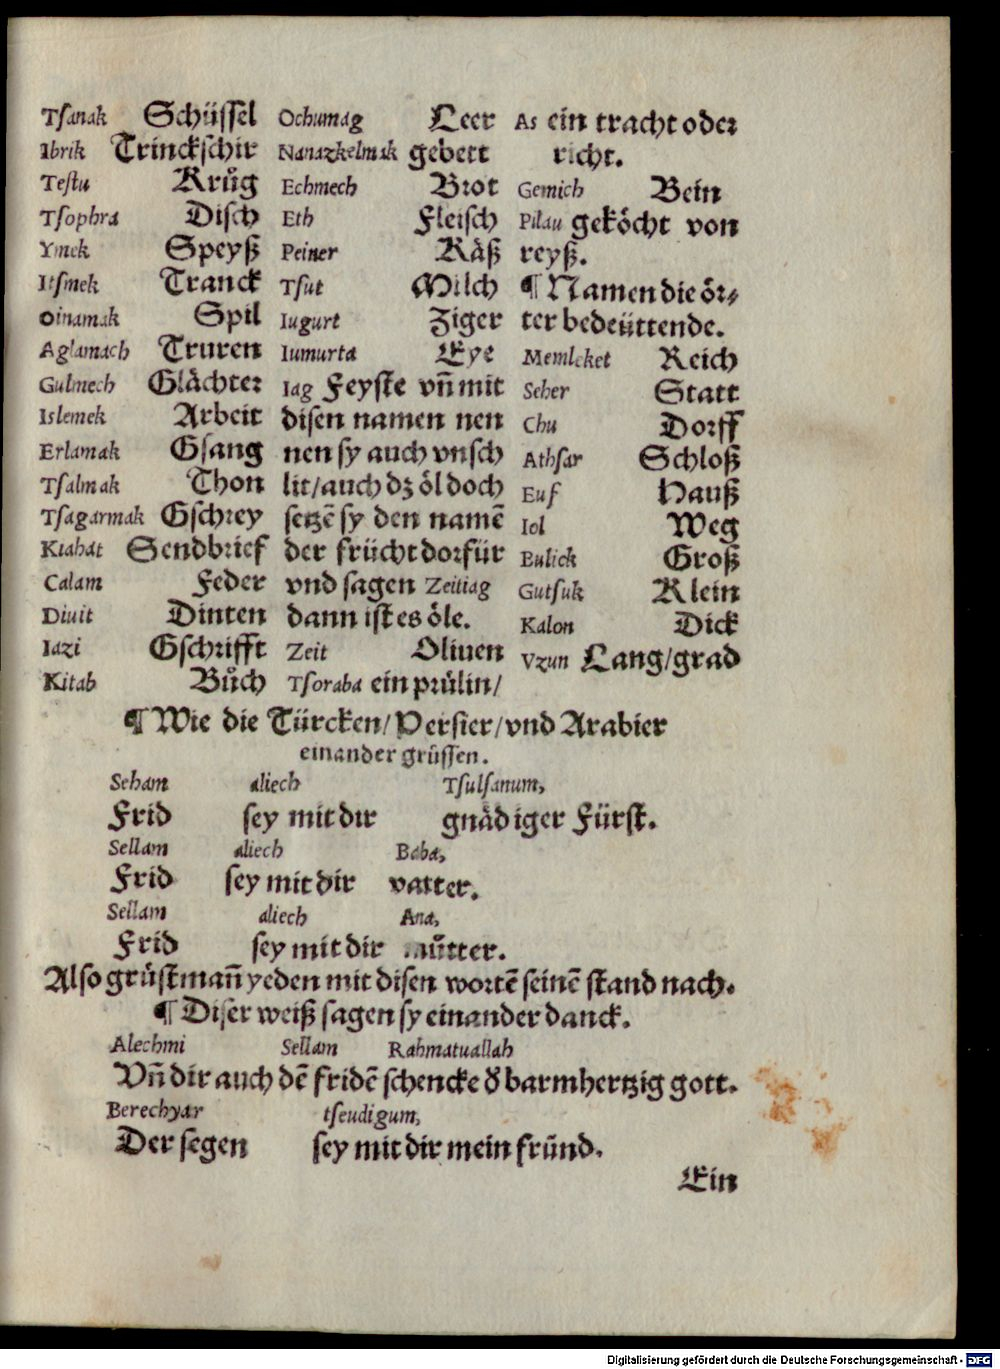 Tſanak Schüſſel
Ibrik Trinckſchir
Teſtu Krůg
Tſophra Diſch
Ymek Speyß
Itſmek Tranck
Oinamak Spil
Aglamach Truren
Gulmech Glächter
Islemek Arbeit
Erlamak Gſang
Tſalmak Thon
Tſagarmak Gſchrey
Kiahat Sendbrief
Calam Feder
Diuit Dinten
Iazi Gſchrifft
Kitab Bůch
Ochumag Leer
Nanazkelmak gebett
Echmech Brot
Eth Fleiſch
Peiner Käß
Tſut Milch
Iugurt Ziger
Iumurta Eye
Iag Feyſte vn̄ mit
diſen namen nen
nen ſy auch vnſch
lit/auch dz öl doch
ſetzē ſy den namē
der frücht dorfür
vnd ſagen Zeitiag
dann iſt es öle.
Zeit Oliuen
Tſoraba ein průlin/
As ein tracht oder
richt.
Gemich Bein
Pilau geköcht von
reyß.
¶ Namen die ör⸗
ter bedeüttende.
Memleket Reich
Seher Statt
Chu Dorff
Athſar Schloß
Euf Hauß
Iol Weg
Buiick Groß
Gutſuk Klein
Kalon Dick
Vzun Lang/grad
¶ Wie die Türcken/Perſier/vnd Arabier
einander grüſſen.
Seham aliech Tſulſanum,
Frid ſey mit dir gnädiger Fürſt.
Sellam aliech Baba,
Frid ſey mit dir vatter.
Sellam aliech Ana,
Frid ſey mit dir můtter.
Alſo grüſt man̄ yeden mit diſen wortē ſeinē ſtand nach.
¶ Diſer weiß ſagen ſy einander danck.
Alechmi Sellam Rahmatuallah
Vn̄ dir auch dē fridē ſchencke d̕ barmhertzig gott.
Berechyar tſeudigum,
Der ſegen ſey mit dir mein fründ.
Ein
Digitalisierung gefördert durch die Deutsche Forschungsgemeinschaft - DFG